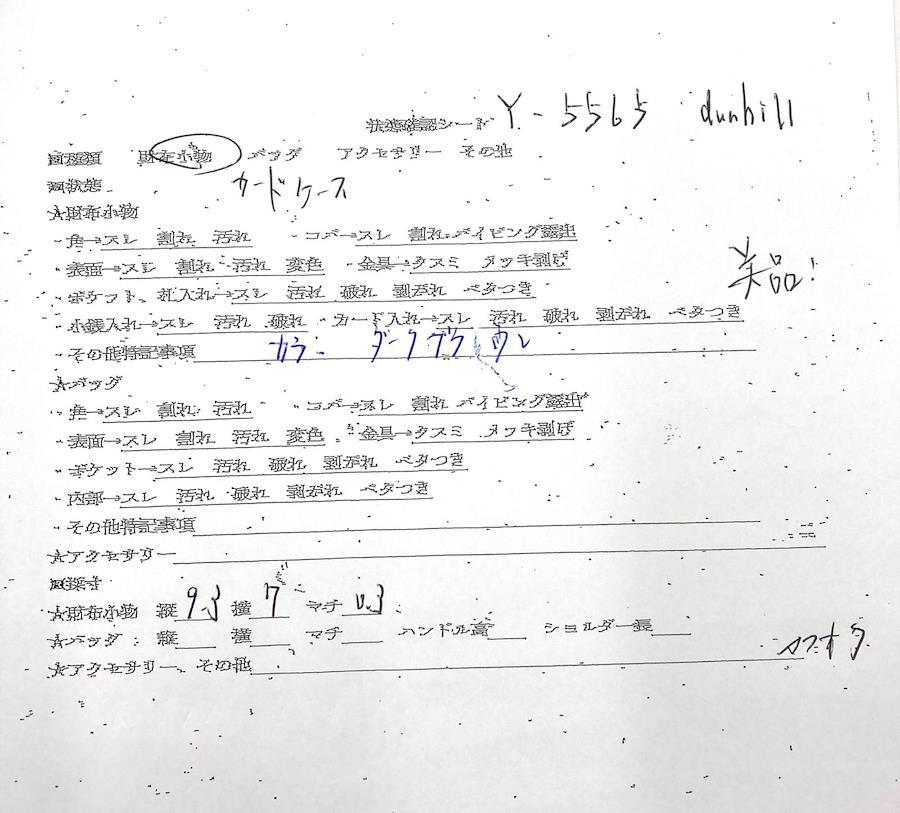 状態確認シート Y-5565 dunhill
■種類 財布小物 バッグ アクセサリー その他
■状態 カードケース
★財布小物
・角→スレ 割れ 汚れ ・コバ→スレ 割れ パイピング露出
・表面→スレ 割れ 汚れ 変色 ・金具→クスミ メッキ剥げ
・ポケット、札入れ→スレ 汚れ 破れ 剥がれ ベタつき
美品!
・小銭入れ→スレ 汚れ 破れ ・カード入れ→スレ 汚れ 破れ 剥がれ ベタつき
・その他特記事項 カラー ダークブラウン
★バッグ
・角→スレ 割れ 汚れ ・コバ→スレ 割れ パイピング露出
・表面→スレ 割れ 汚れ 変色 ・金具→クスミ メッキ剥げ
・ポケット→スレ 汚れ 破れ 剥がれ ベタつき
・内部→スレ 汚れ 破れ 剥がれ ベタつき
・その他特記事項
★アクセサリー
■採寸
★財布小物 縦 9.3 横 7 マチ 0.3
★バッグ 縦 横 マチ ハンドル高 ショルダー長
★アクセサリー、その他